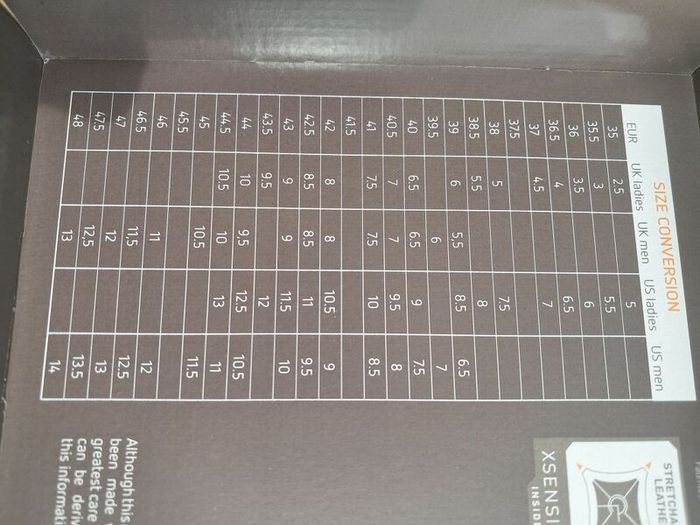 SIZE CONVERSION
EUR UK ladies UK men US ladies US men
35 2.5 5
35.5 3 5.5
36 3.5 6
36.5 4 6.5
37 4.5 7
37.5
38 5 7.5
38.5 5.5 8
39 6 5.5 8.5 6.5
39.5 6 7
40 6.5 6.5 9 7.5
40.5 7 7 9.5 8
41 7.5 7.5 10 8.5
41.5
42 8 8 10.5 9
42.5 8.5 8.5 11 9.5
43 9 9 11.5 10
43.5 9.5 12
44 10 9.5 12.5 10.5
44.5 10.5 10 13 11
45 10.5 11.5
45.5
46 11 12
46.5 11,5 12.5
47 12 13
47.5 12,5 13.5
48 13 14
STRETCHA
LEATHE
XSENSI
INSID
Although this
been made
greatest care
can be deriv
this informati